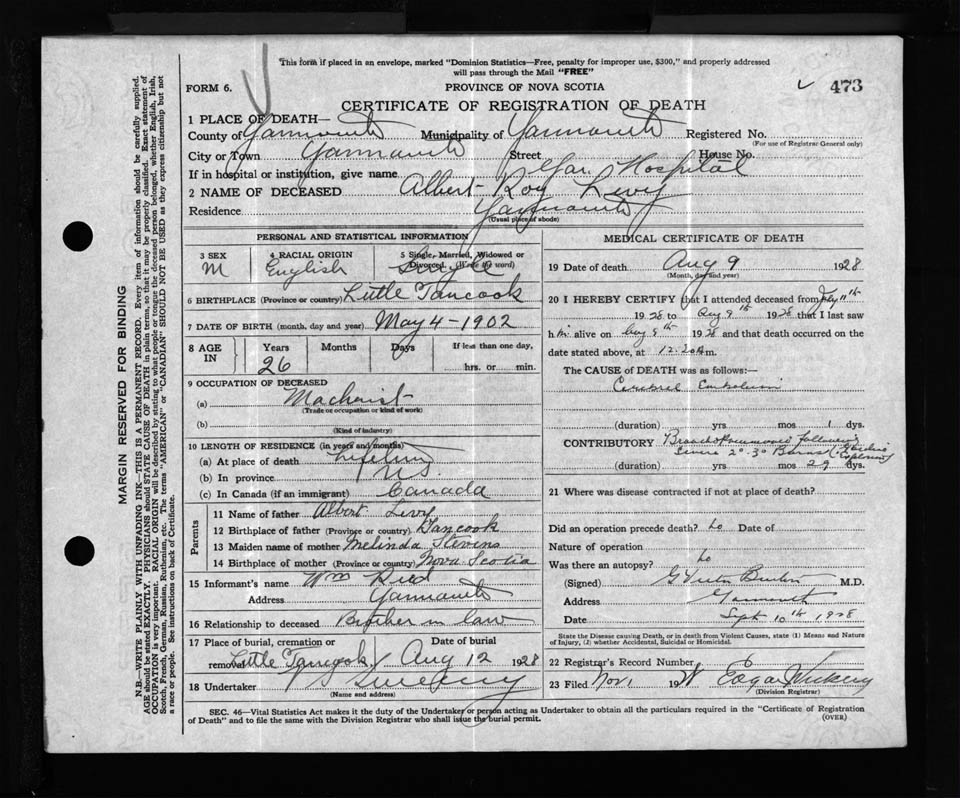 This form if placed in an envelope, marked "Dominion Statistics—Free, penalty for improper use, $300," and properly addressed
will pass through the Mail "FREE"
FORM 6. PROVINCE OF NOVA SCOTIA 473
CERTIFICATE OF REGISTRATION OF DEATH
1 PLACE OF DEATH—
County of Yarmouth Municipality of Yarmouth Registered No.
(For use of Registrar General only)
City or Town Yarmouth Street House No.
If in hospital or institution, give name Yar Hospital
2 NAME OF DECEASED Albert Roy Levy
Residence Yarmouth
(Usual place of abode)
PERSONAL AND STATISTICAL INFORMATION
3 SEX 4 RACIAL ORIGIN 5 Single, Married, Widowed or
Divorced (Write the word)
M English Single
6 BIRTHPLACE (Province or country) Little Tancook
7 DATE OF BIRTH (month, day and year) May 4-1902
8 AGE IN Years Months Days If less than one day,
26 hrs. or min.
9 OCCUPATION OF DECEASED
(a) Machinist
(Trade or occupation or kind of work)
(b)
(Kind of industry)
10 LENGTH OF RESIDENCE (in years and months)
(a) At place of death Lifetime
(b) In province N.S.
(c) In Canada (if an immigrant) Canada
Parents
11 Name of father Albert Levy
12 Birthplace of father (Province or country) Tancook
13 Maiden name of mother Melinda Stevens
14 Birthplace of mother (Province or country) Nova Scotia
15 Informant's name Wm Reed
Address Yarmouth
16 Relationship to deceased Brother in law
17 Place of burial, cremation or Date of burial
removal Little Tancook Aug 12 1928
18 Undertaker V S Sweeny
(Name and address)
MEDICAL CERTIFICATE OF DEATH
19 Date of death Aug 9 1928
(Month, day and year)
20 I HEREBY CERTIFY that I attended deceased from July 11th
1928 to Aug 9th 1928 that I last saw
him alive on Aug 9th 1928 and that death occurred on
date stated above, at m.
The CAUSE of DEATH was as follows:—
Cerebral Embolism
(duration) yrs mos 1 days.
CONTRIBUTORY Bronchopneumonia following
Severe 2°-3° Burns
(duration) yrs mos 29 dys.
21 Where was disease contracted if not at place of death?
Did an operation precede death? No Date of
Nature of operation
Was there an autopsy? No
(Signed) M.D.
Address Yarmouth
Date Sept 10th 1928
State the Disease causing Death, or in death from Violent Causes, state (1) Means and Nature
of Injury, (2) whether Accidental, Suicidal or Homicidal.
22 Registrar's Record Number
23 Filed Nov 1 1928 Edgar
(Division Registrar)
SEC. 46—Vital Statistics Act makes it the duty of the Undertaker or person acting as Undertaker to obtain all the particulars required in the "Certificate of Registration
of Death" and to file the same with the Division Registrar who shall issue the burial permit. (OVER)
MARGIN RESERVED FOR BINDING
N.B.—WRITE PLAINLY WITH UNFADING INK—THIS IS A PERMANENT RECORD. Every item of information should be carefully supplied.
AGE should be stated EXACTLY. PHYSICIANS should STATE CAUSE OF DEATH in plain terms, so that it may be properly classified. Exact statement of
OCCUPATION is very important. RACIAL ORIGIN will be described by stating to what people or tongue the deceased person belonged, whether English, Irish,
Scotch, French, German, Russian, Ruthenian, etc. The terms "AMERICAN" or "CANADIAN" SHOULD NOT BE USED as they express citizenship but not
a race or people. See instructions on back of Certificate.